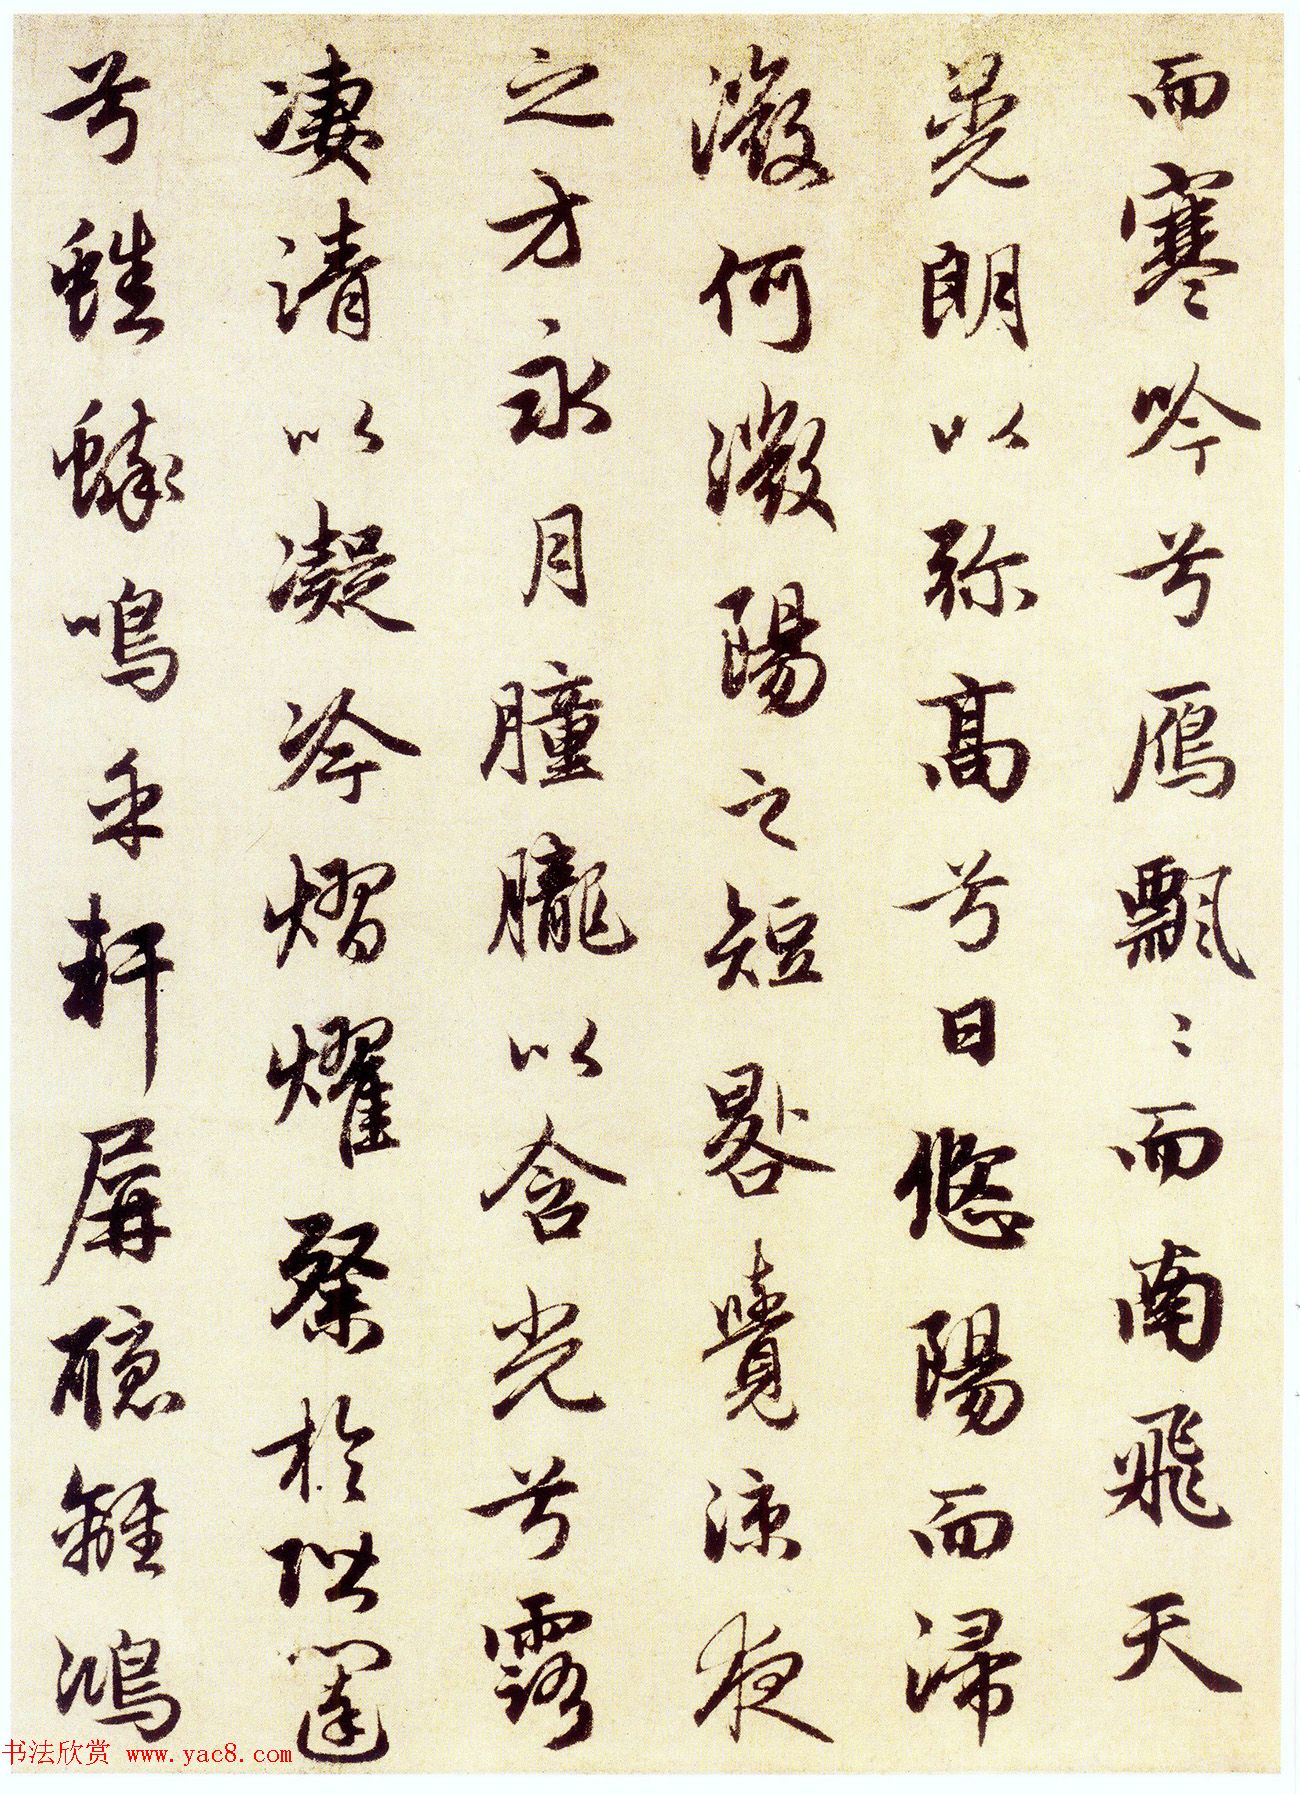 而寒吟兮雁飘〻而南飛天
晃朗以弥高兮日悠陽而㱕
微何微陽之短晷覺涼夜
之方永月朣朧以含光兮露
凄清以凝冷熠燿粲於階闥
兮蟋蟀鳴乎軒屏聽離鴻
书法欣赏 www.yac8.com